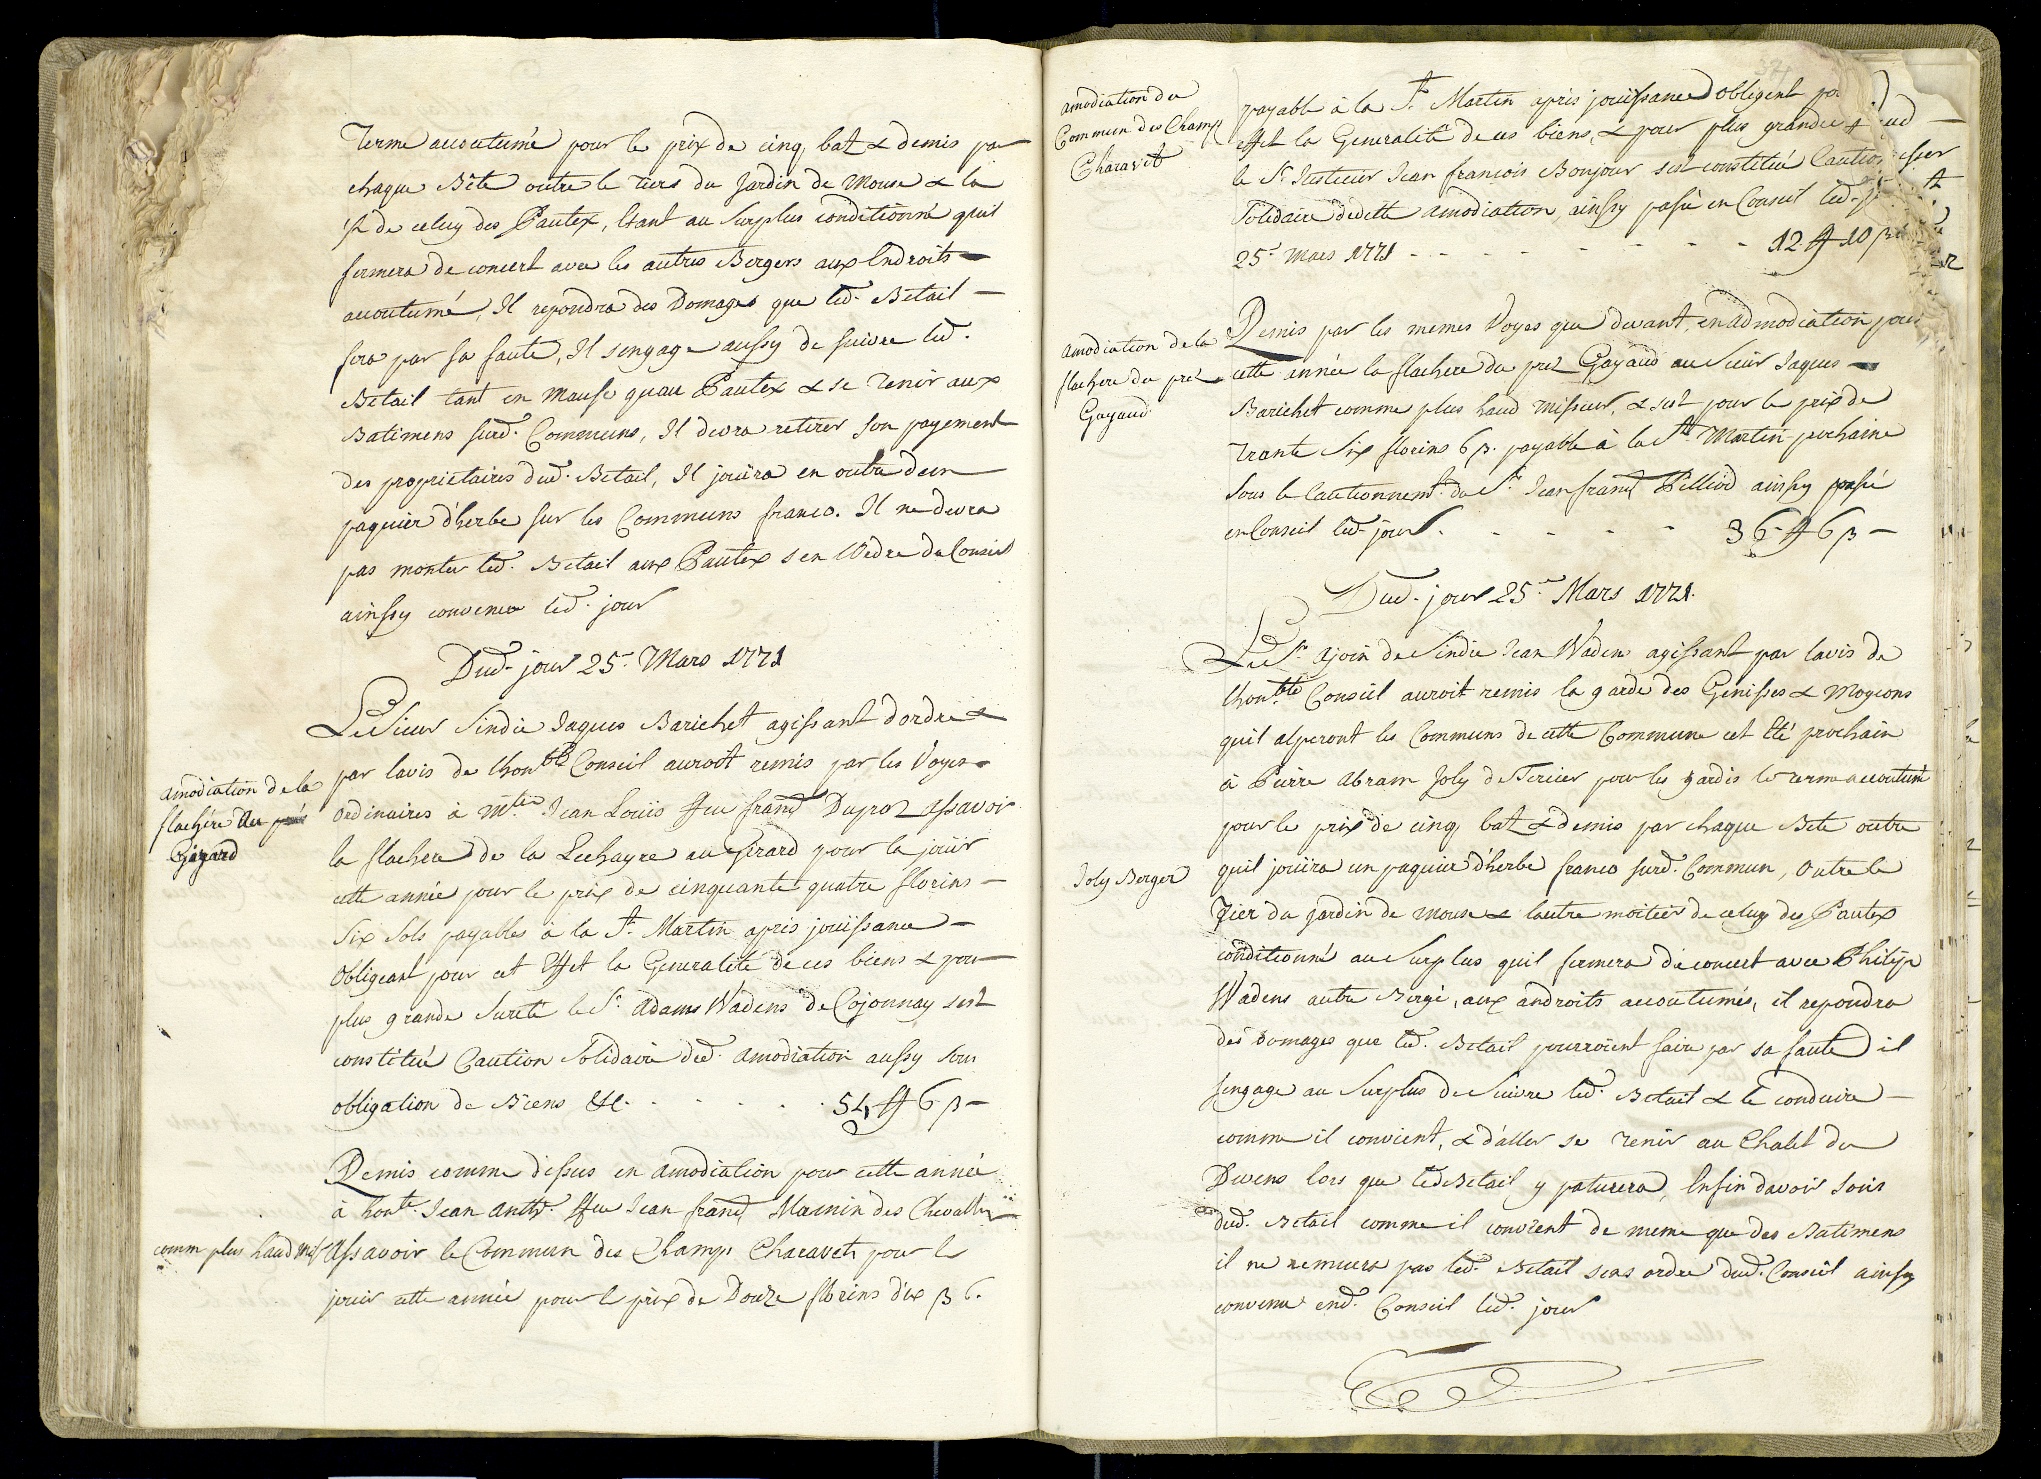 Terme accoutumé pour le prix de cinq batz & demis par
chaque Bête outre le tiers du Jardin de Mouse & la
½ de celuy des Pautex, étant au Surplus conditionné quil
fermera de concert avec les autres Bergers aux Endroits
accoutumé, Il repondra des Domages que led. Bétail
fera par sa faute, Il sengage aussy de suivre led.
Betail tant en Mause quau Pautex & se tenir aux
Batimens surd. Communs, Il devra retirer son payement
des proprietaires dud. Betail, Il jouïra en outre dun
paquier d'herbe sur les Communs franco. Il ne devra
pas monter led. Betail aux Pautex sen L'ordre du Conseil
ainssy convenu led. jour
Dud. jour 25e. Mars 1771
amodiation de la
flachére du prés
Gayard
Le Sieur Sindic Jaques Barichet agissant dordre &
par lavis de Lhonble Conseil auroit remis par les Voyes
ordinaires à mtre Jean Louis ffeu franç Dupro assavoir
la flachere de la Lechayre au Girard pour la jouïr
cette année pour le prix de cinquante quatre florins
Six Sols payables à la St. Martin apris jouissance
obligeant pour cet Effet la Generalité de ces biens & pour
plus grande sureté le Sr. Adams Wadens de Cojonnay sest
constitué Caution Solidaire dud. amodiation aussy sous
obligation de Biens &c. . . . . . 54 ff 6 β
Remis comme dessus en amodiation pour cette année
à hont. Jean Anth. ffeu Jean franç Mamin des Chevalleyres
comm plus haud miss
Assavoir le Commun des Champs Charavet pour le
jouir cette année pour le prix de Douze florins dix β 6.
amodiation du
Commun des Champs
Charavet
payable à la St. Martin apris jouïssance obligent po
effet la Generalité de ces biens, & pour plus grande
le Sr. Justicier Jean francois Bonjour sest constitué Caution
Solidaire dedette amodiation, ainssy passé en Conseil led.
25e. Mars 1771 - - - - - - - 12 ff 10 β
amodiation de la
flachere du prez
Gayaud
Remis par les memes Voyes que devant, en admodiation pour
cette année la flachere du prez Gayaud au Sieur Jaques
Barichet comme plus haud missieur, & sest pour le prix de
trante Six florins 6 β. payable à la St. Martin prochaine
sous le Cautionnemt. du Sr. Jean franç Pilliod ainssy passé
en Conseil led. jour. - - - - - 36 ff 6 β
Dud. jour 25e. Mars 1771.
Le Sr. Ajoin de Sindic Jean Wadens agissant par lavis de
Lhonble Conseil auroit remis la garde des Genisses & Mogeons
quil alperont les Communs de cette Commune cet Eté prochain
à Pierre Abram Joly de Tercier pour les gardés le terme accoutumé
pour le prix de cinq batz & demis par chaque Bete outre
Joly Berger
quil jouïra un paquier d'herbe franco surd. Commun, Outre le
Tier du jardin de Mouse & lautre moitier de celuy des Pautex
conditionné au Surplus quil fermera de concert avec Philipe
Wadens autre Bergé, aux androits accoutumés, il repondra
des Domages que led. Betail pourroient faire par sa faute il
sengage au Surplus de Suivre led. Betail & le conduire
comme il convient, & d'aller se tenir au Chalet du
Devens lors que led Betail y paturera, Enfin davoir soin
dud. Betail comme il convient de meme que des Batimens
il ne remuera pas led. Betail sans ordre dud. Conseil ainssy
convenu end. Conseil led. jour